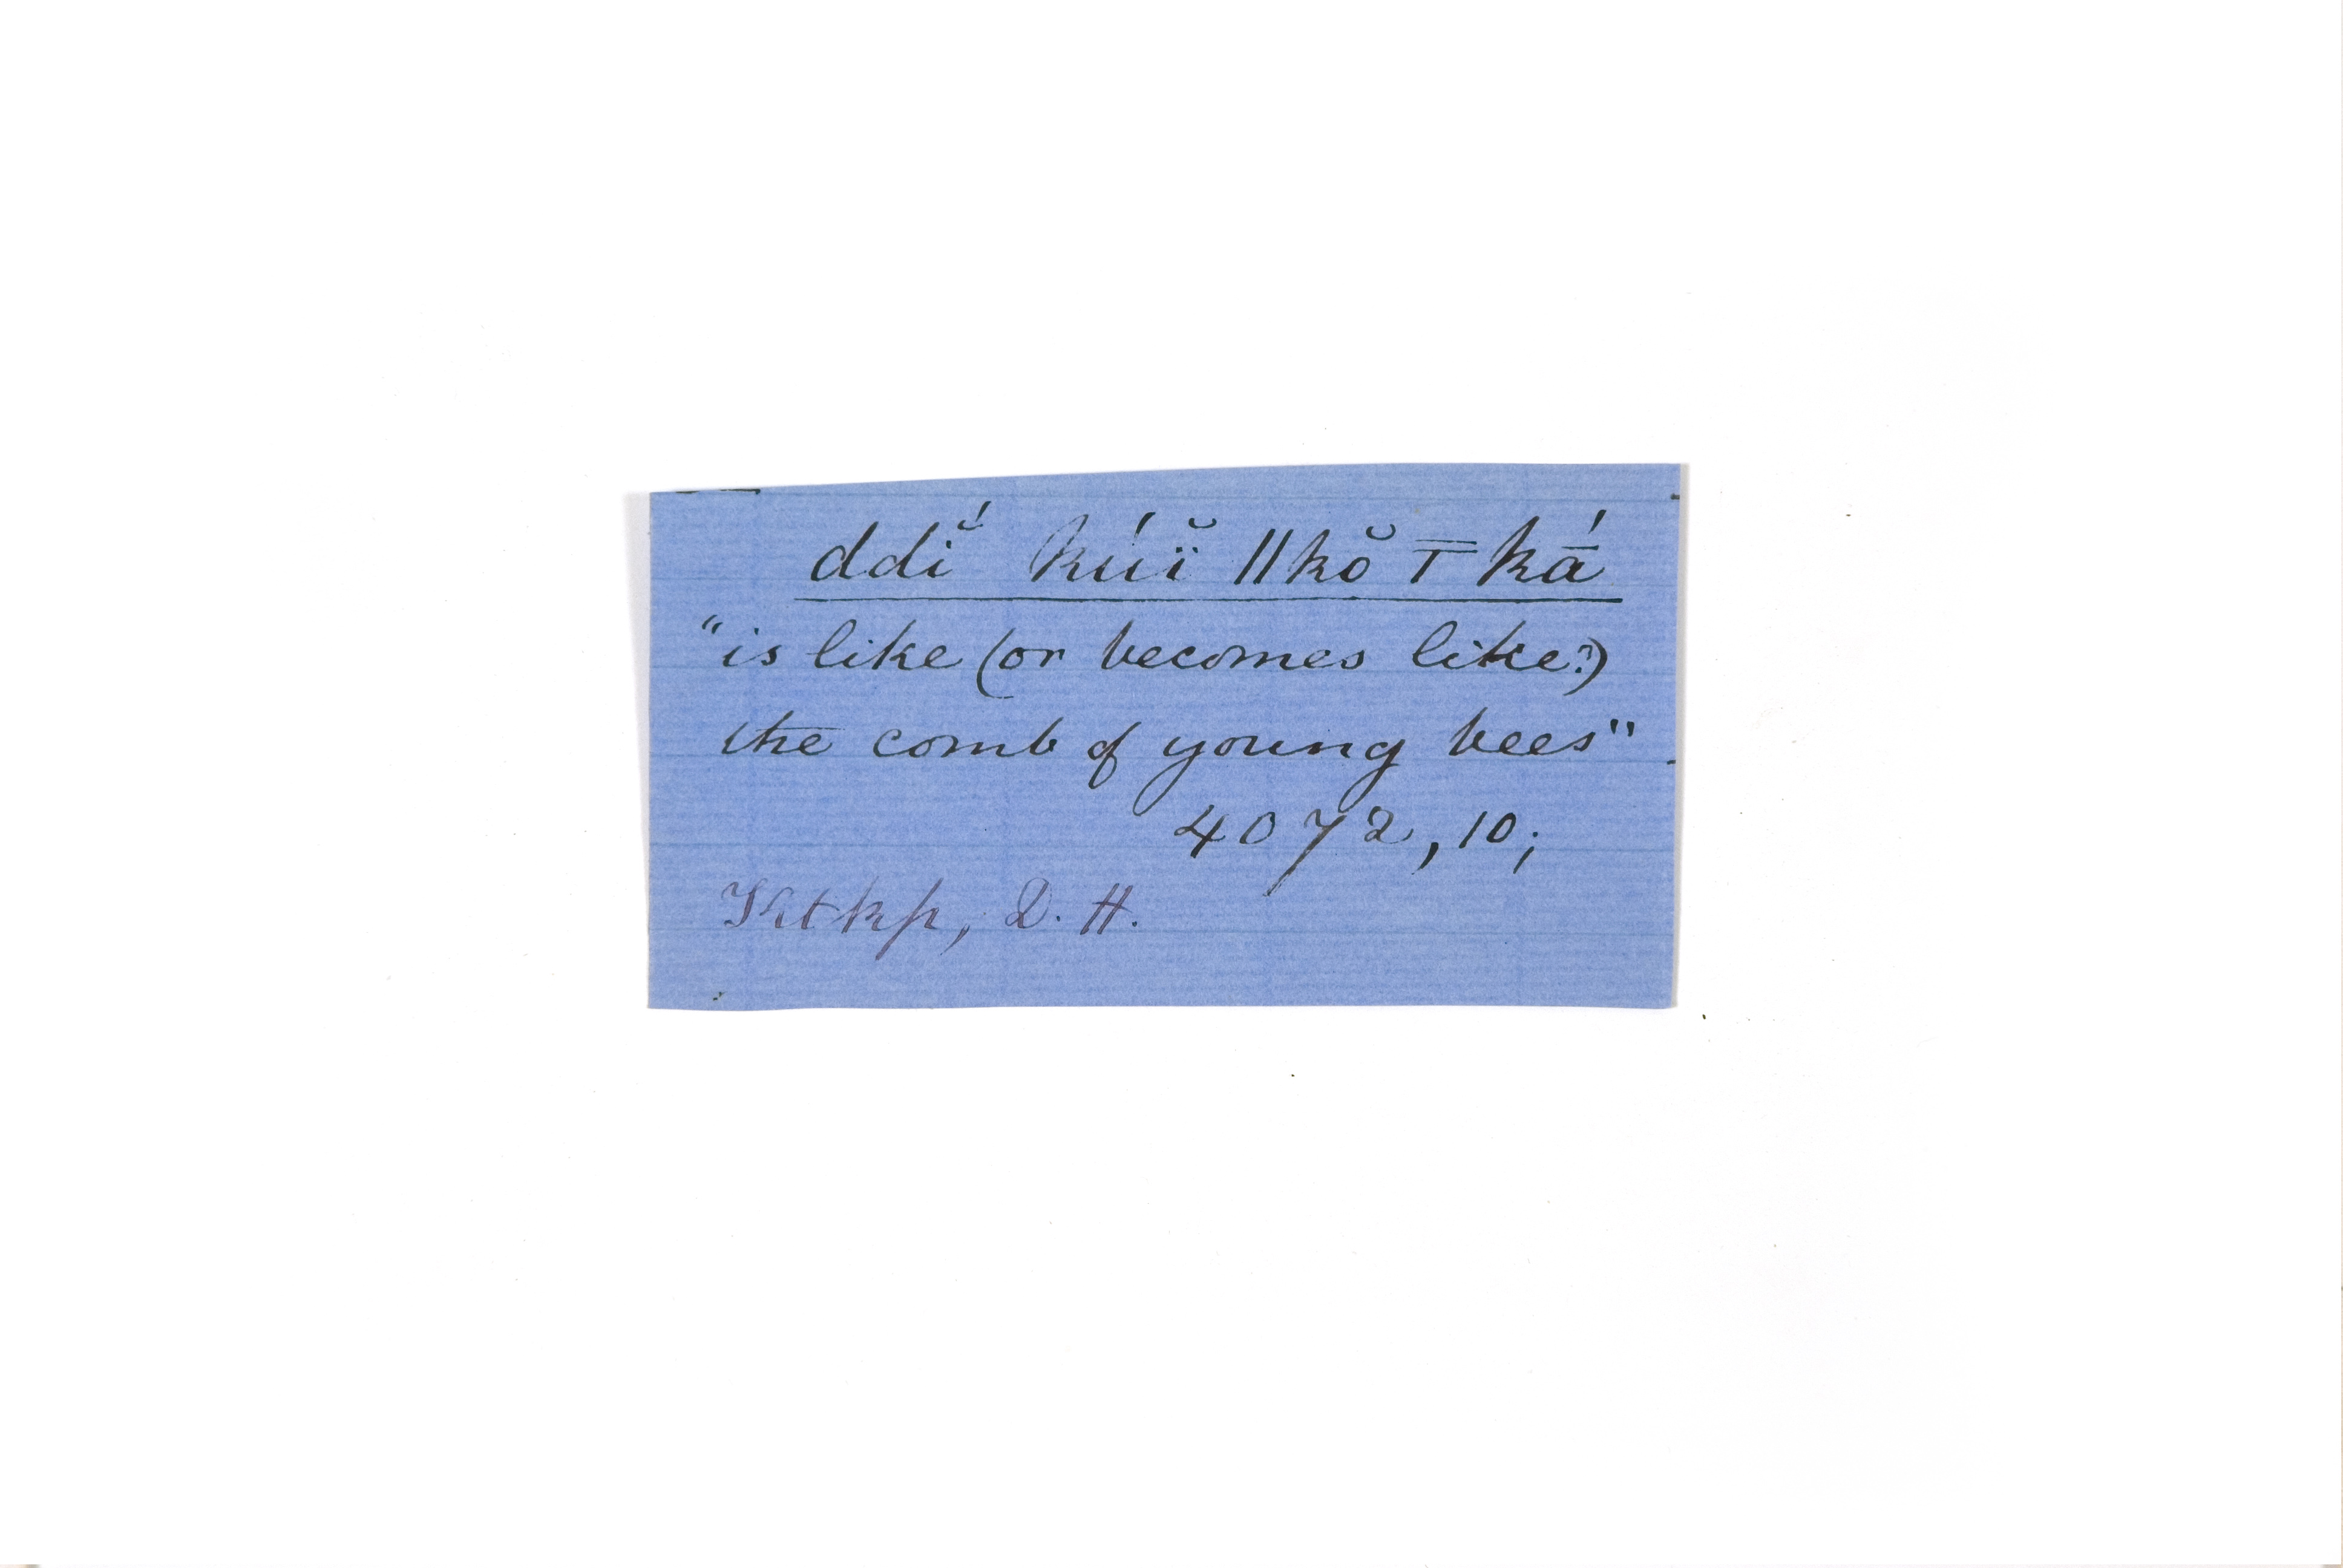 ddĭ́ kúï̆ ǁkŏ͞͞ı ká̄
"is like (or becomes like?)
the comb of young bees"
4072, 10;
Ktkp, D. H.